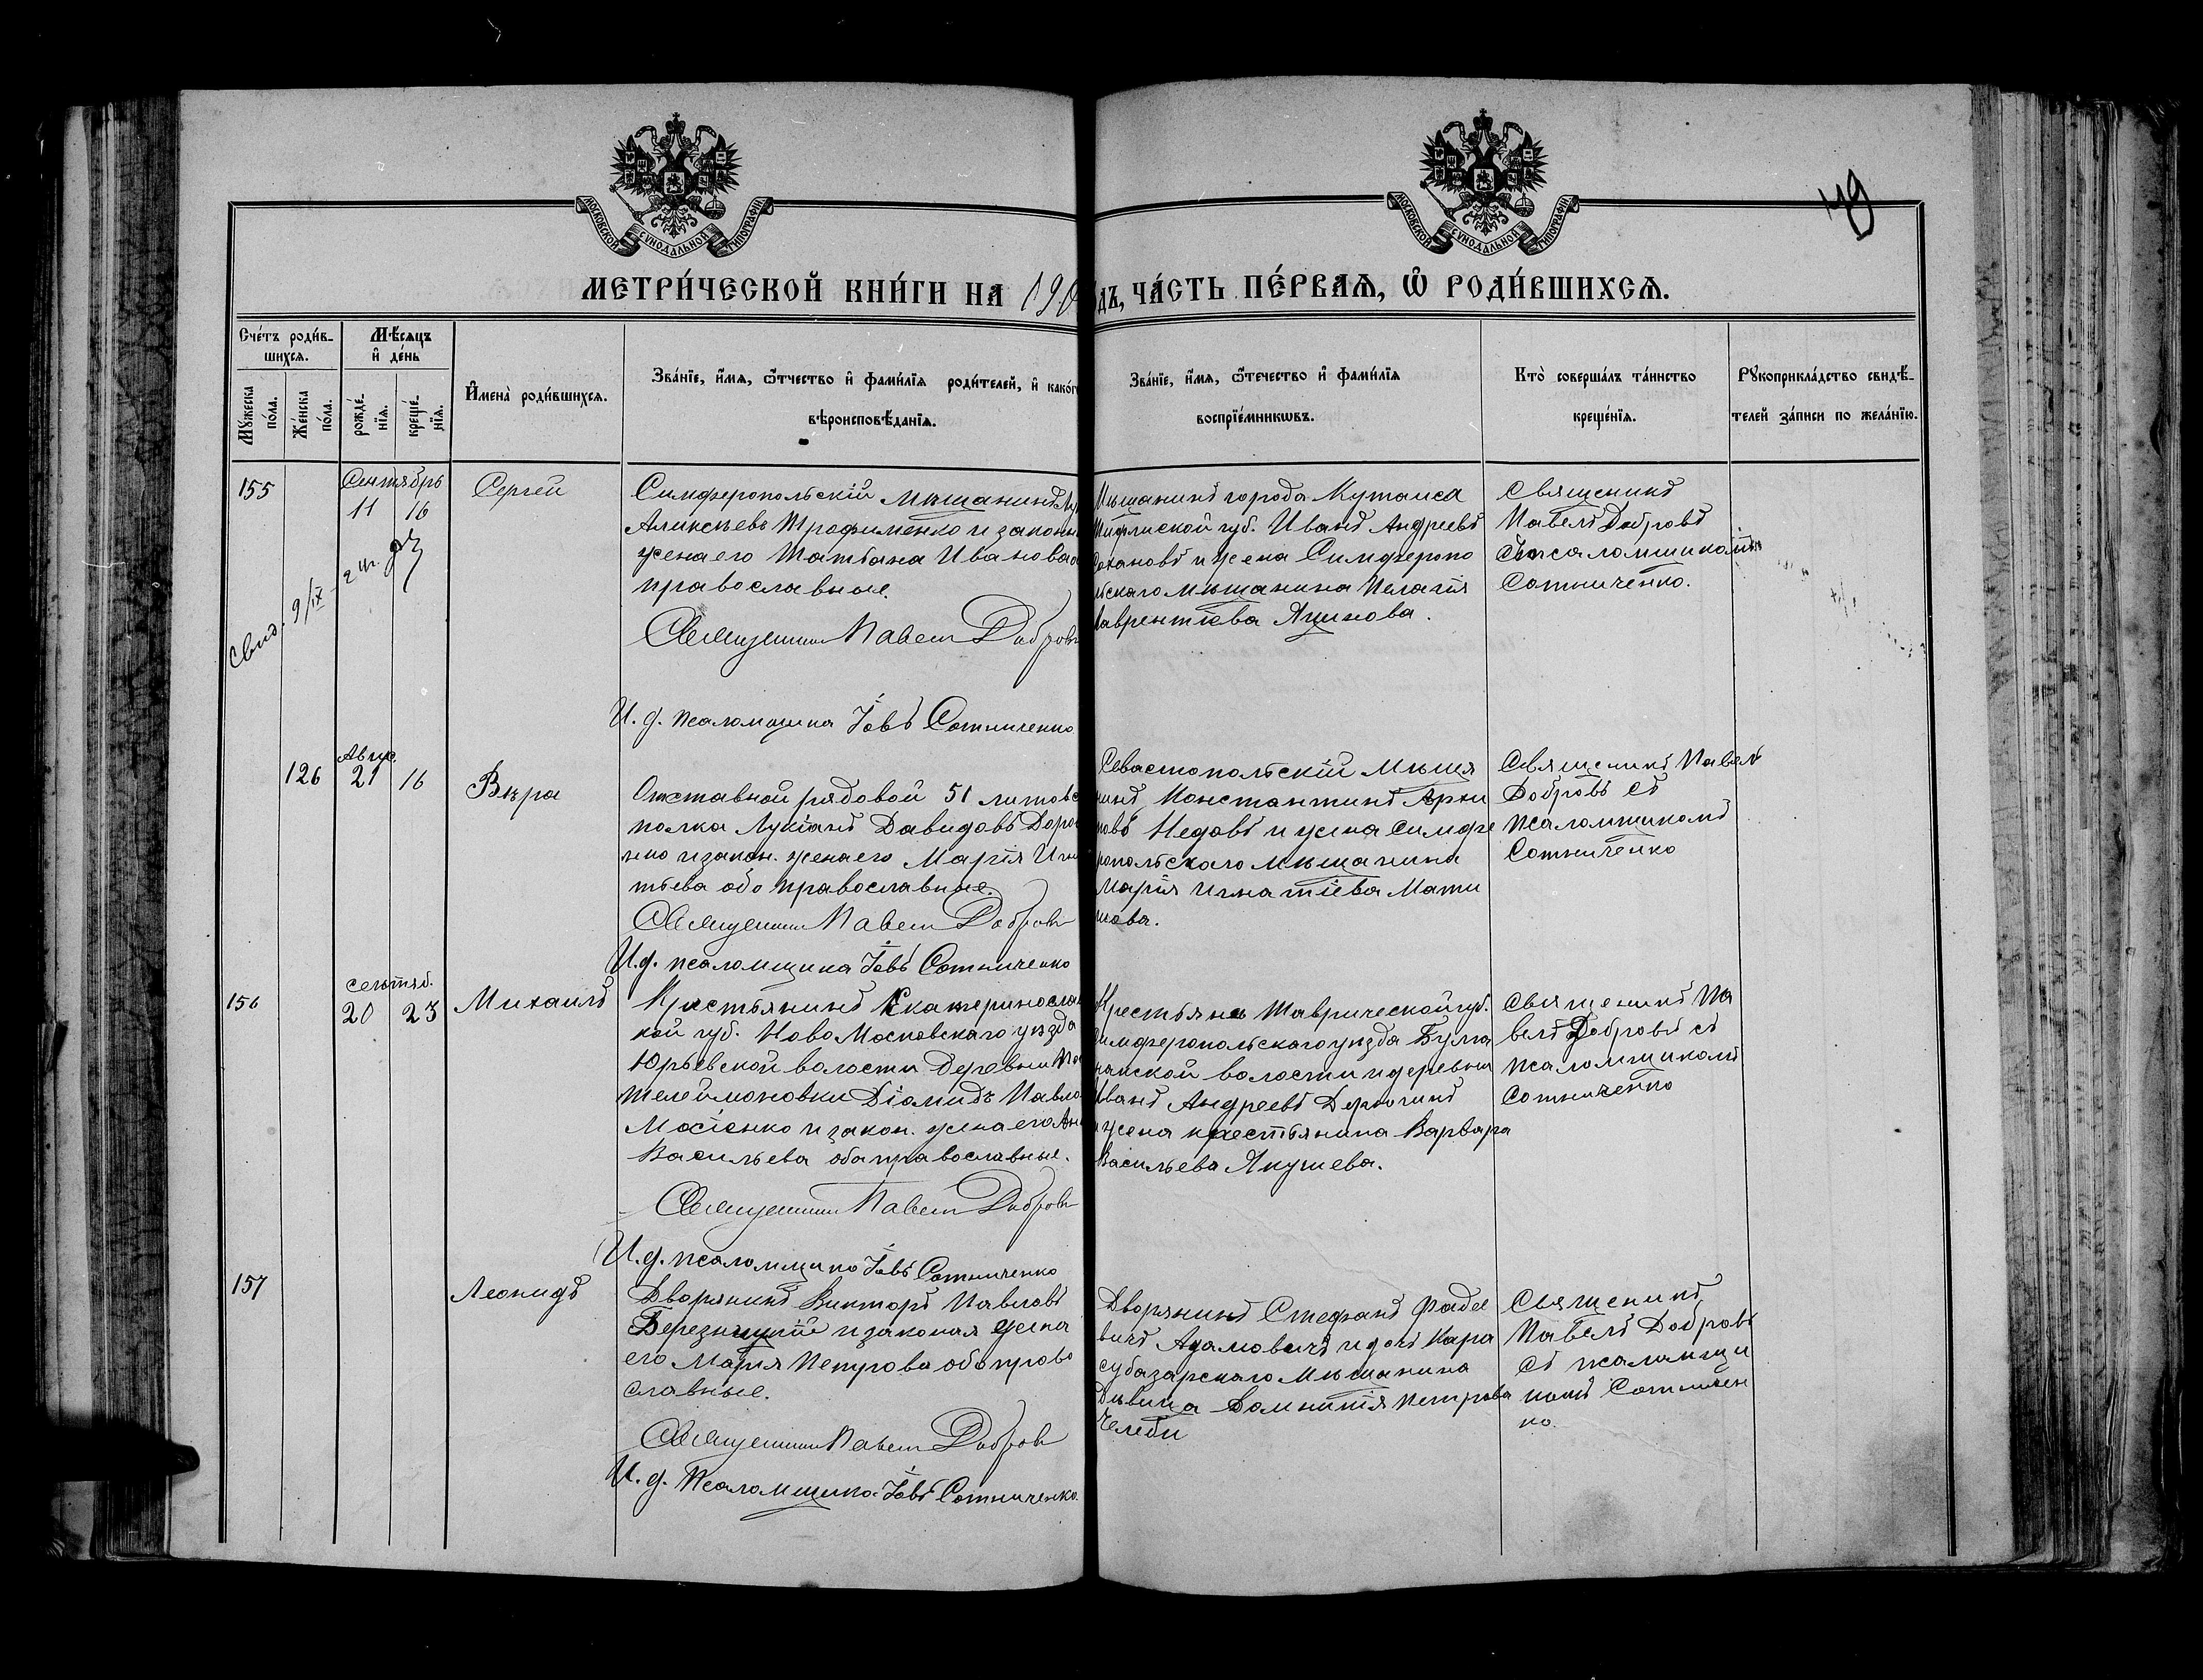 МОСКОВСКОЙ СѴНОДАЛЬНОЙ ТИПОГРАФІИ
МОСКОВСКОЙ СѴНОДАЛЬНОЙ ТИПОГРАФІИ
49
МЕТРИ́ЧЕСКОЙ КНИ́ГИ НА 190
дъ, ЧА́СТЬ ПЕ́РВАѦ, Ѽ РОДИ́ВШИХСѦ.
Сче́тъ роди́в-
шихсѧ.
Мѣ́сѧцъ
и҆ де́нь
Мꙋ́жеска
по́ла.
Же́нска
по́ла.
рожде́-
нїѧ.
креще́-
нїѧ.
И҆мена̀ роди́вшихсѧ.
Зва́нїе, и҆́мѧ, ѻ҆́тчество и҆ фами́лїѧ роди́телей, и҆ како́г
вѣроисповѣ́данїѧ.
Зва́нїе, и҆́мѧ, ѻ҆́течество и҆ фами́лїѧ
воспрїе́мникѡвъ.
Кто̀ соверша́лъ та́инство
креще́нїѧ.
Рꙋкоприкла́дство свидѣ́-
телей за́писи по жела́нїю.
155
Сентябрь
11 16
Сергей
Свид. 9/IX
Симферопольскій мѣщанинъ
Аликсѣевъ Трофименко и законн
жена его Татьана Иванова
православные.
Священник Павел Добровъ
И. д. псаломщика Іовъ Сотниченко
Мѣщанинъ города Кутаиса
Тифлиской губ. Иванъ Андреевъ
и жена Симферопо
льскаго мѣщанина Пелагія
Лаврентіева Яцинова.
Священикъ
Павелъ Добровъ
съ псаломшикомъ
Сотниченко.
126
Авгус.
21 16
Вѣра
Отставной рядовой 51 литовс
полка Лукіанъ Давидовъ Доро
нко и закон. жена его Марія Игна
тьева обо православные.
Священник Павел Добровъ
И. д. псаломщика Іовъ Сотниченко
Севастопольскій мѣща
нинъ Константинъ
Недовъ и жена симфе
ропольскаго мѣщанина
Марія Игнатіева Мати
шова.
Священикъ Павелъ
Добровъ съ
псаломшикомъ
Сотниченко
156
сентяб.
20 23
Михаилъ
Кристьянинъ Екатеринослав
кой губ. Ново Московскаго уѣзда
Юрьевской волости деревни Па
телеймоновки Діамидъ Павло
Мосіенко и закон. жена его Ан
Васильева оба православные.
Священник Павел Добровъ
И. д. псаломщика Іовъ Сотниченко
Крестьяне Таврической губ.
Симферопольскаго уѣзда Булга
накской волости и деревни
Иванъ Андреевъ Дерюгинъ
и жена крестьянина Варвара
Васильева Якушева.
Священикъ Па
велъ Добровъ съ
псаломшикомъ
Сотниченко
157
Леонидъ
Дворянинъ Викторъ Павловъ
Березницкій и законая жена
его Марія Петрова обо право
славные.
Священник Павел Добров
И. д. Псаломщика Іовъ Сотниченко.
Дворянинъ Стефанъ Фадее
вичъ Адамовичъ и дочь Кара
субазарскаго мѣщанина
Дѣвица Домникія Петрова
Челеби
Священикъ
Павелъ Добровъ
съ псаломщи
комъ Сотничен
ко.